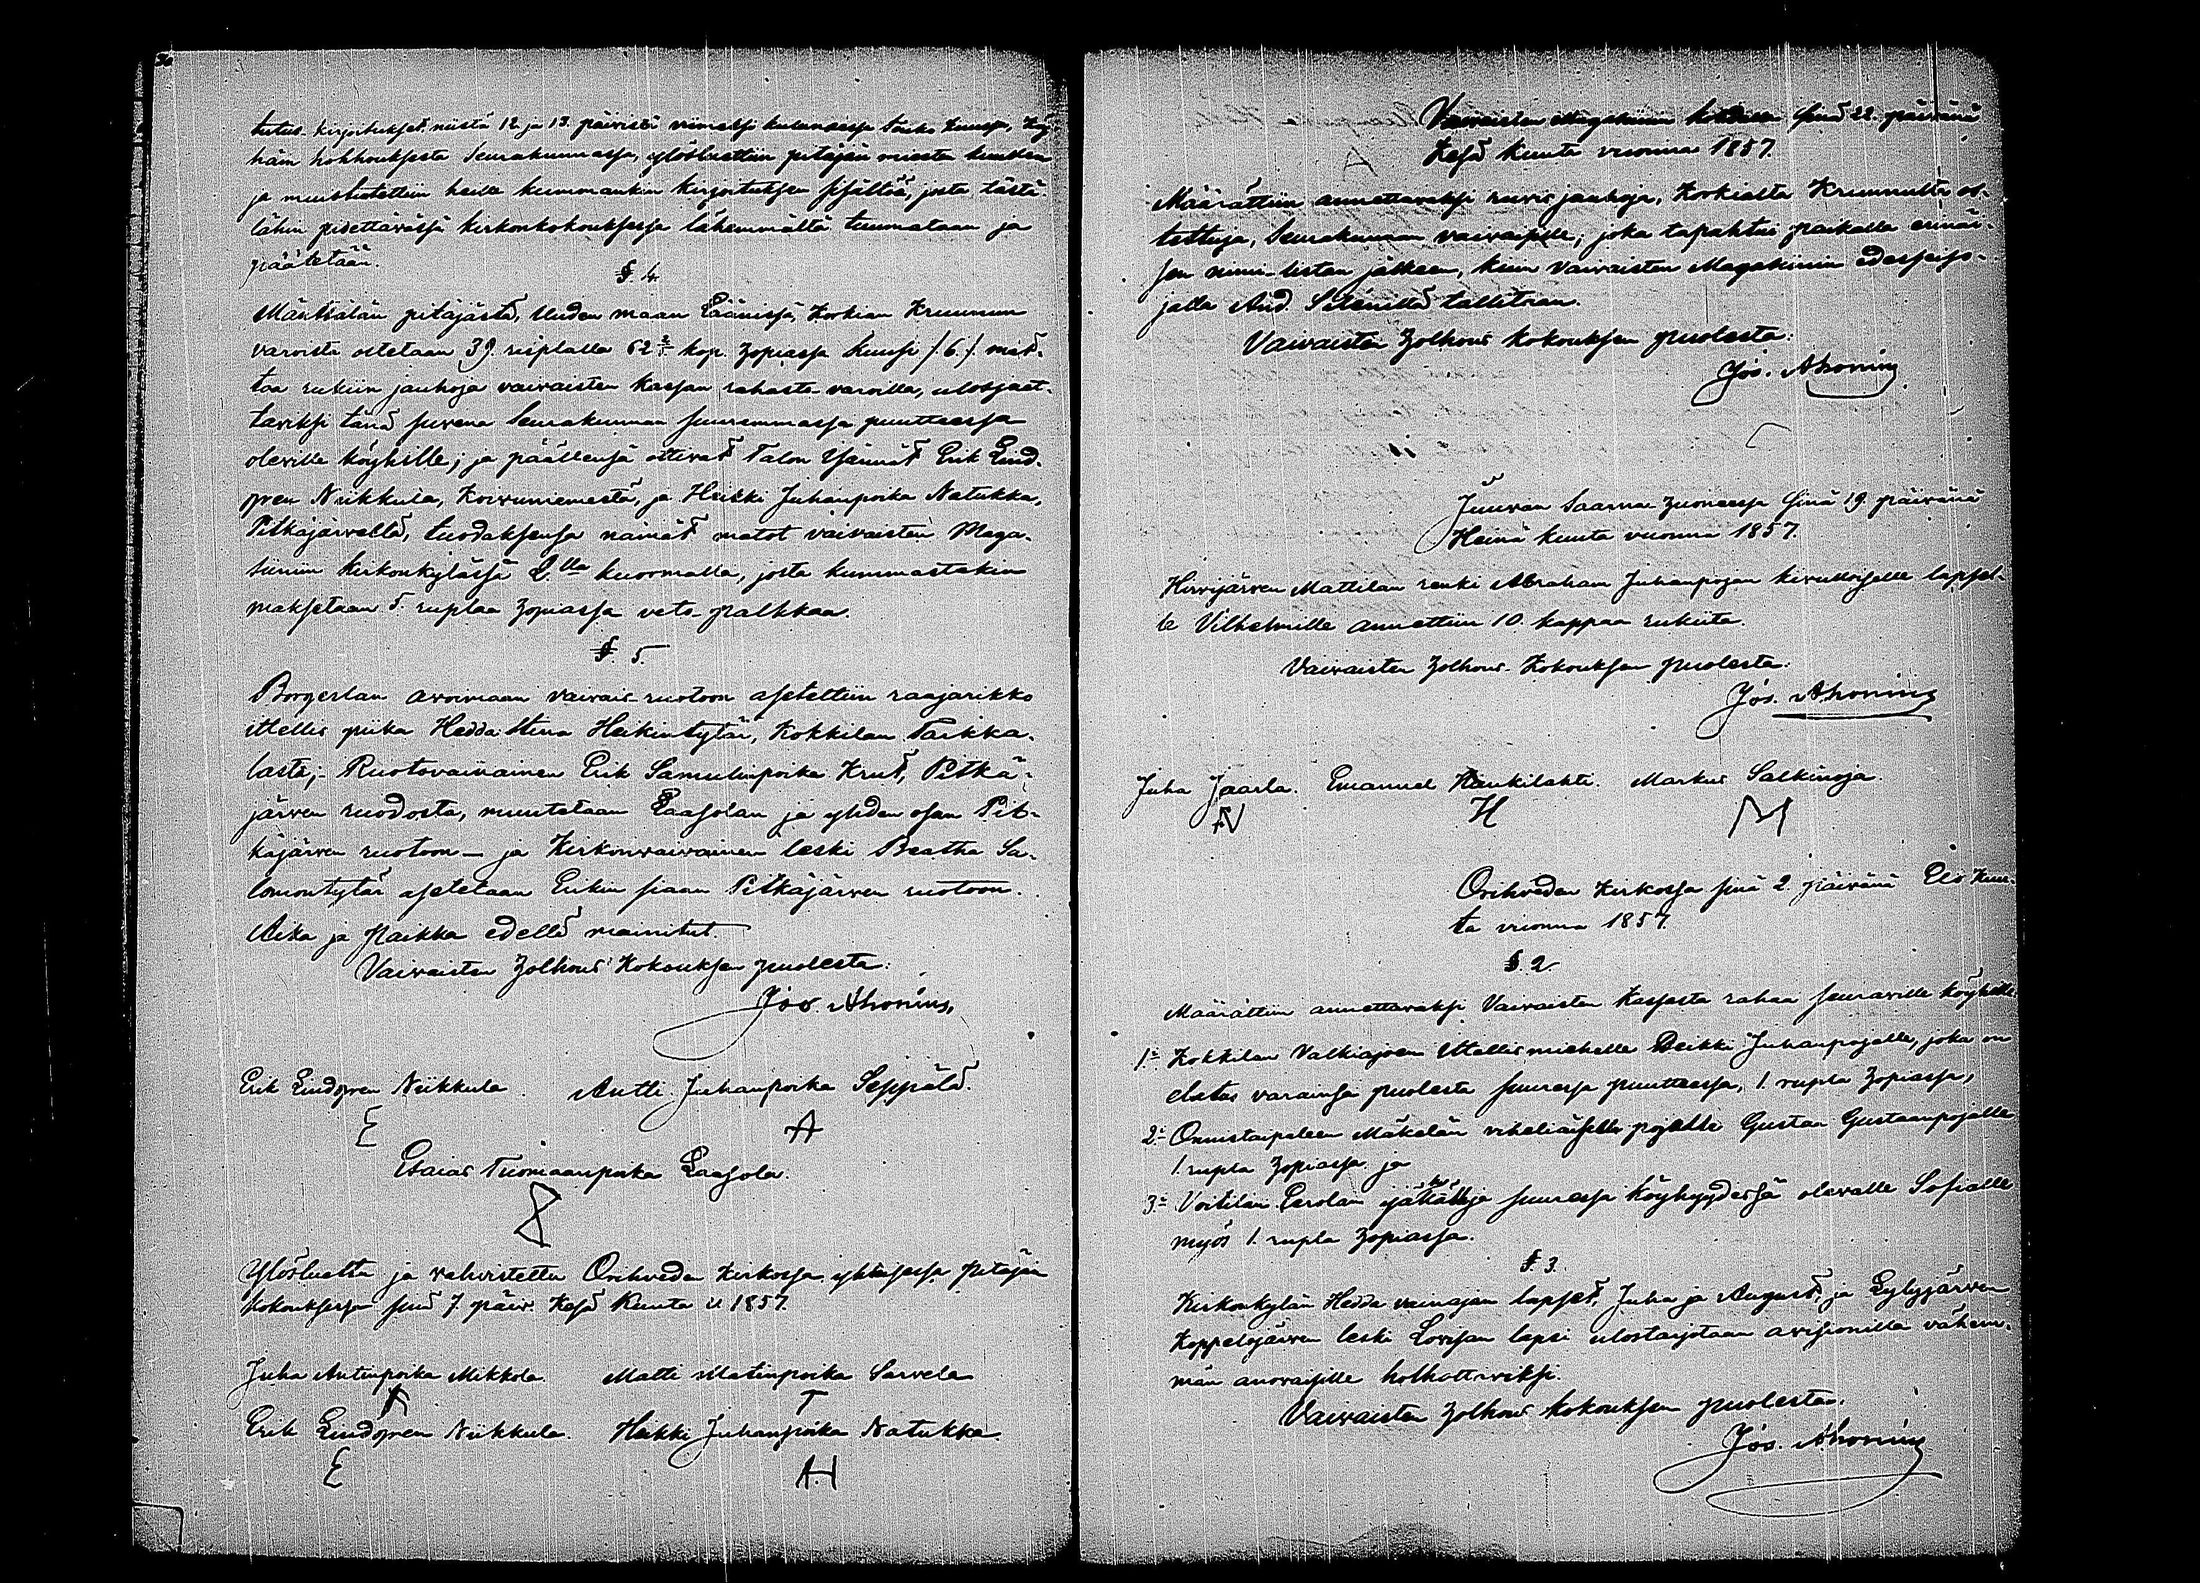 tutus kirjoitukset niistä 12. ja 13. päivistä viimeksi kuluneessa Touko kuussa, köy-
häin hohhouksesta Seurakunnassa, ylösluettiin pitäjän miesten kuullen
ja muistutettiin heille kummankin kirjoituksen sisältöä, josta tästä
lähin pidettävässä kirkonkokouksessa lähemmältä tuumataan ja
päätetään.
§ 4.
Mäntsälän pitäjästä, Uuden maan Läänissä, Korkian Kruunun
varoista ostetaan 39. ruplalla 62 kop. Hopiassa Kuusi /6/. mat-
too rukiin jauhoja vaivaisten kassan rahasto-varoilla, ulosjaet-
taviksi tänä suvena Seurakunnan suuremmassa puutteessa
oleville köyhille; ja päällensä ottivat Talon Isännät Erik Lind-
gren Niikkula, Koivuniemestä, ja Heikki Juhanpoika Natukka,
Pitkäjärveltä, tuodaksensa nämät matot vaivaisten Maga-
siiniin kirkonkylässä 2lla kuormalla, josta kummastakin
maksetaan 5. ruplaa Hopiassa veto-palkkaa.
§. 5.
Borgerlan avoimaan vaivais-ruotoon asetettiin raajarikko
ittellis piika Hedda Stina Heikintytär, Kokkilan Taikka-
lasta; Ruotovaivainen Erik Samulinpoika Krut, Pitkä-
järven ruodosta, muutetaan Laasolan ja yhden osan Pit-
käjärven ruotoon — ja Kirkonvaivainen leski Beatha Sa-
lomontytär asetetaan Erikin siaan Pitkäjärven ruotoon.
Aika ja paikka edellä mainitut.
Vaivaisten Holhous Kokouksen puolesta:
Jos. Ahonius.
Erik Lindgren Niikkula. Antti Juhanpoika Seppälä.
E A
Esaias Tuomaanpoika Laasola.
Ylösluettu ja vahvistettu Orihveden kirkossa yhteisessä pitäjän
kokouksessa sinä 7. päiv. Kesä Kuuta v. 1857.
Juha Antinpoika Mikkola. Matti Matinpoika Sarvela
Erik Lindgren Niikkula. Heikki Juhanpoika Natukka.
E
Vaivaisten Magasiinin sinä 22. päivänä
Kesä kuuta vuonna 1857.
Määrättiin annettavaksi ruis jauhoja, Korkialta Kruunulta os-
tettuja, Seurakunnan vaivaisille; joka tapahtui paikalla erinäi-
sen nimi-listan jälkeen, kuin Vaivaisten Magasiinin edesseiso-
jalla And. tallitaan.
Vaivaisten Holhous Kokouksen puolesta:
Jos. Ahonius
Juuvan Saarna Huoneessa sinä 19. päivänä
Heinä kuuta vuonna 1857.
Hirvijärven Mattilan renki Abraham Juhanpojan kivulloiselle lapsel-
le Vilhelmille annettiin 10. kappaa rukiita.
Vaivaisten Holhous-Kokouksen puolesta:
Jos. Ahonius
Juha Jaarla. Emanuel Haukilahti. Markus Salkinoja.
H M
Orihveden Kirkossa sinä 2. päivänä Elo Kuu-
ta vuonna 1857.
§. 2.
Määrättiin annettavaksi Vaivaisten Kassasta rahaa seuraaville köyhille
1: Kokkilan Valkiajoen ittellis miehelle Heikki Juhanpojalle, joka on
elatus varainsa puolesta suuressa puutteessa, 1. rupla Hopiassa,
2: Onnistaipaleen Mäkelän viheliäiselle pojalle Gustaa Gustaanpojalle
1. rupla Hopiassa ja
3: Voitilan Eerolan suuressa köyhyydessä olevalle Sofialle
myös 1. rupla Hopiassa.
§. 3.
Kirkonkylän Hedda vainajan lapset, Juha ja August, ja Lylyjärven
Koppelojärven leski Lovisan lapsi ulostarjotaan avisionilla vähem-
män anovaisille holhottaviksi.
Vaivaisten Holhous kokouksen puolesta.
Jos. Ahonius